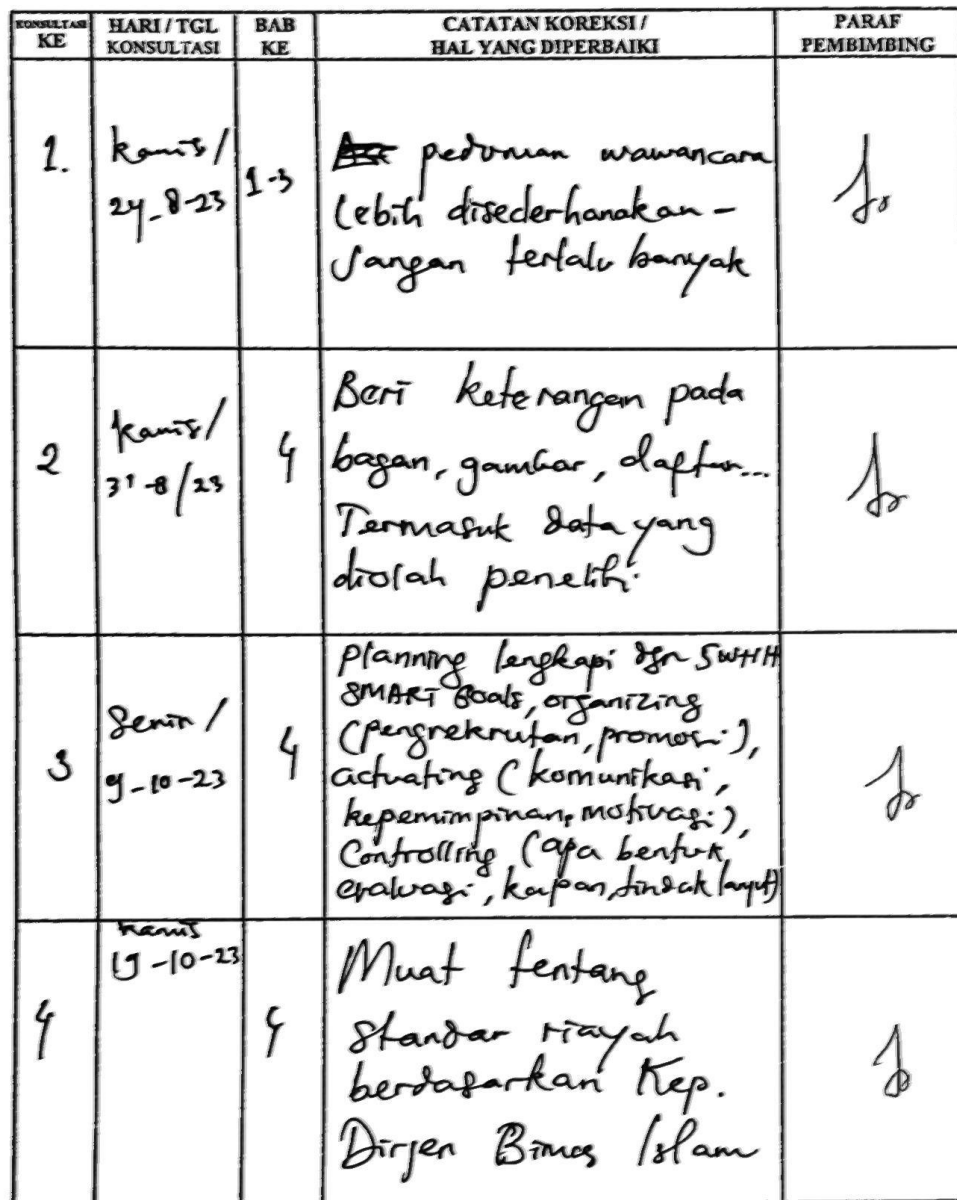 KONSULTASI KE
HARI / TGL KONSULTASI
BAB KE
CATATAN KOREKSI / HAL YANG DIPERBAIKI
PARAF PEMBIMBING
1.
Kamis /
24-8-23
1-3
pedoman wawancara
lebih disederhanakan -
Jangan terlalu banyak
2
Kamis /
31-8/23
4
Beri keterangan pada
bagan, gambar, daftar...
Termasuk data yang
diolah peneliti.
3
Senin /
9-10-23
4
Planning lengkapi dgn 5W+1H
SMART Goals, organizing
(pengrekrutan, promosi),
actuating (komunikasi,
kepemimpinan, motivasi),
Controlling (apa bentuk
evaluasi, kapan, tindak lanjut)
4
Kamis
19-10-23
4
Muat tentang
standar riayah
berdasarkan Kep.
Dirjen Bimas Islam